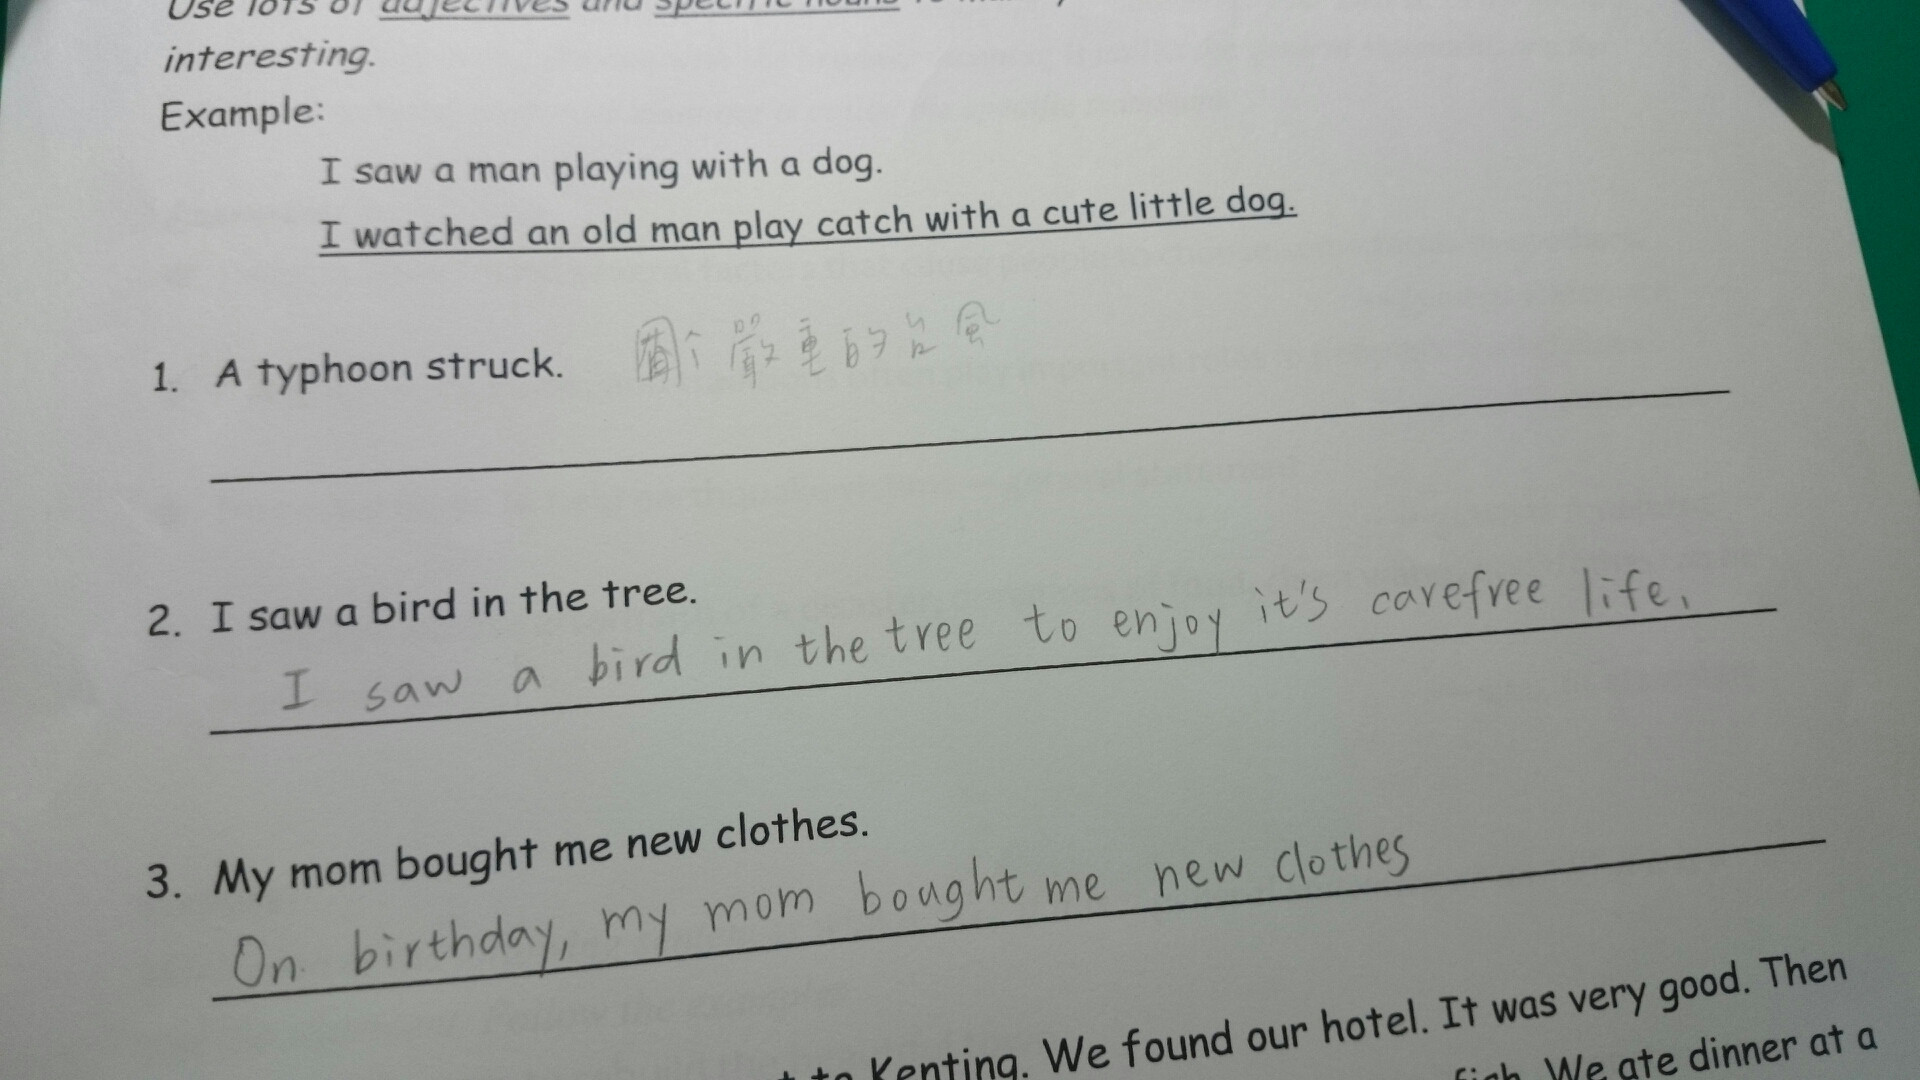 Use lots of adjectives and specific nouns to
interesting.
Example:
I saw a man playing with a dog.
I watched an old man play catch with a cute little dog.
1. A typhoon struck. 個嚴重的台風
2. I saw a bird in the tree.
I saw a bird in the tree to enjoy it's carefree life.
3. My mom bought me new clothes.
On birthday, my mom bought me new clothes
to Kenting. We found our hotel. It was very good. Then
We ate dinner at a